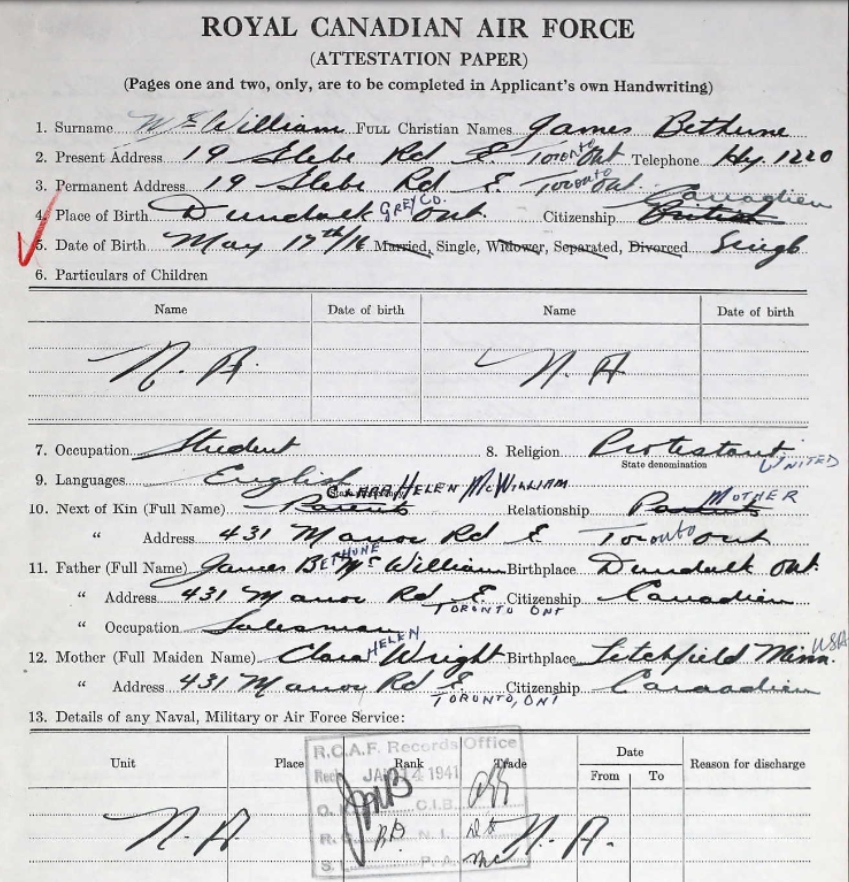 ROYAL CANADIAN AIR FORCE
(ATTESTATION PAPER)
(Pages one and two, only, are to be completed in Applicant's own Handwriting)
1. Surname McWilliam FULL Christian Names James Bethune
2. Present Address 19 Glebe Rd E. Toronto Ont Telephone Hy. 1220
3. Permanent Address 19 Glebe Rd E. Toronto Ont.
Canadian
4. Place of Birth Dundalk GREY CO. Ont. Citizenship British
5. Date of Birth May 17th/16 Married, Single, Widower, Separated, Divorced Single
6. Particulars of Children
Name Date of birth Name Date of birth
N. A. N. A
7. Occupation Student 8. Religion Protestant UNITED
State denomination
9. Languages English
CLARA HELEN McWILLIAM MOTHER
10. Next of Kin (Full Name) Parents Relationship Parents
" Address 431 Manor Rd E Toronto Ont
11. Father (Full Name) James BETHUNE McWilliam Birthplace Dundalk Ont.
" Address 431 Manor Rd E. TORONTO ONT Citizenship Canadian
" Occupation Salesman
12. Mother (Full Maiden Name) Clara HELEN Wright Birthplace Litchfield Minn. USA
" Address 431 Manor Rd E TORONTO, ONT Citizenship Canadian
13. Details of any Naval, Military or Air Force Service:
R.C.A.F. Records Office
Unit Place Rank Trade Date Reason for discharge
From To
JAN 14 1941
C.I.B.
N. A. N. I. N. A.
P. A.